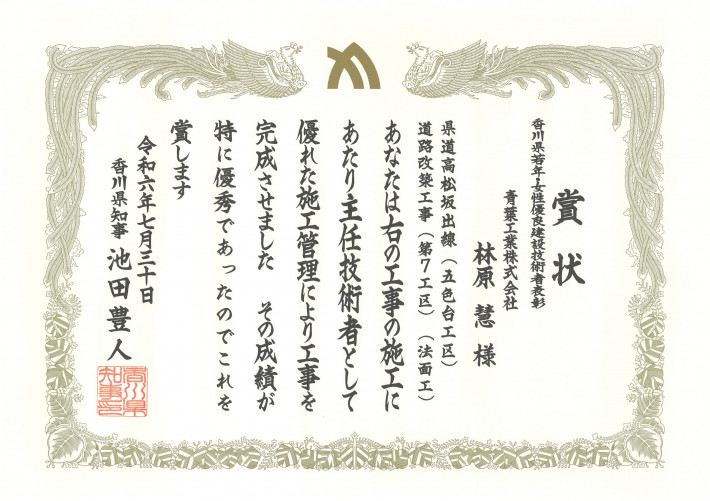 賞状
香川県若年・女性優良建設技術者表彰
青葉工業株式会社
林原慧様
県道高松坂出線（五色台工区）
道路改築工事（第7工区）（法面工）
あなたは右の工事の施工に
あたり主任技術者として
優れた施工管理により工事を
完成させました　その成績が
特に優秀であったのでこれを
賞します
令和六年七月三十日
香川県知事　池田豊人
香川県知事印